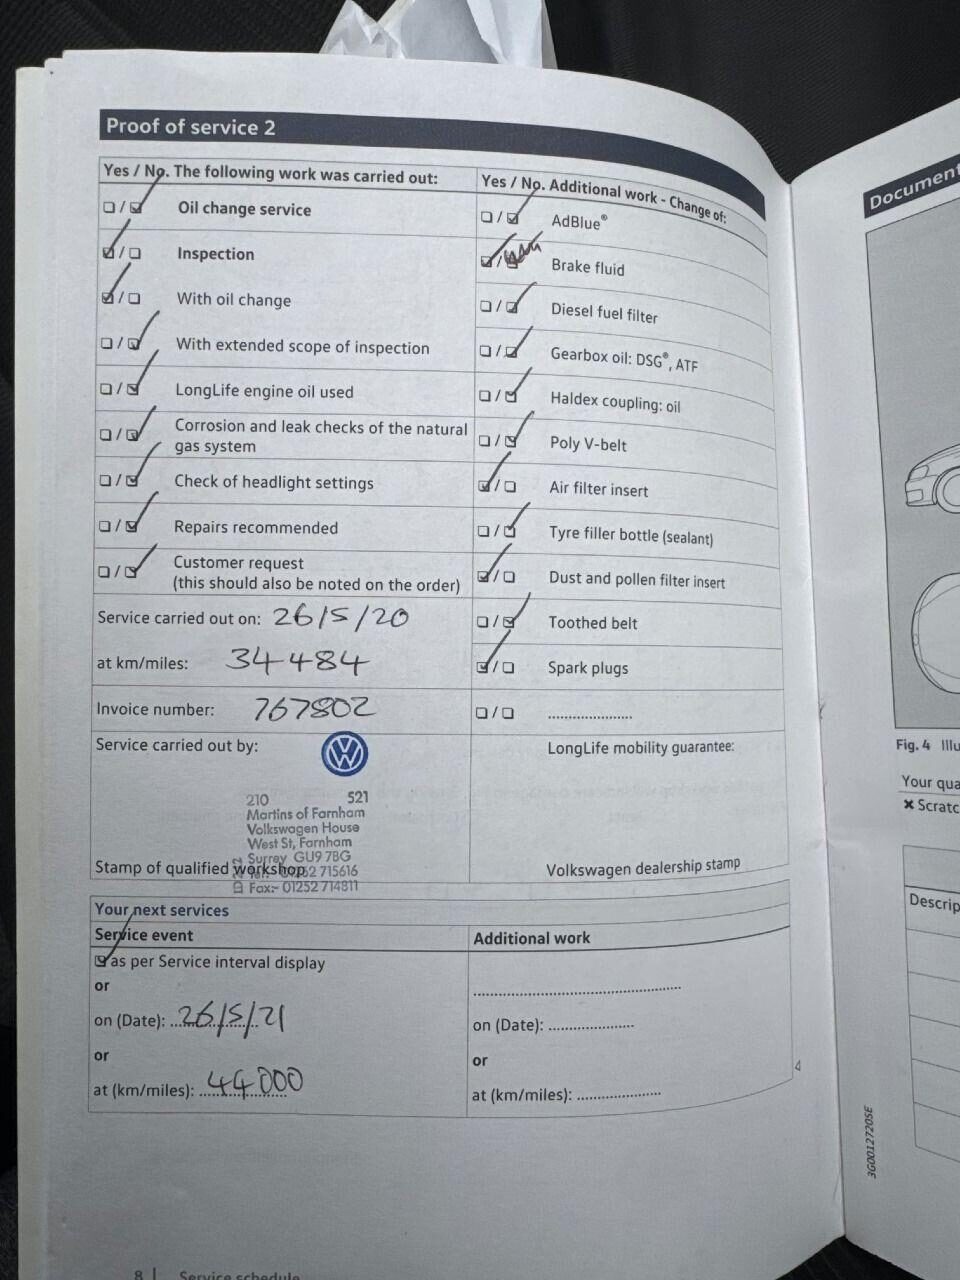 Proof of service 2
Yes / No. The following work was carried out:
Oil change service
Inspection
With oil change
With extended scope of inspection
LongLife engine oil used
Corrosion and leak checks of the natural
gas system
Check of headlight settings
Repairs recommended
Customer request
(this should also be noted on the order)
Service carried out on: 26/5/20
at km/miles: 34484
Invoice number: 767802
Service carried out by:
210 521
Martins of Farnham
Volkswagen House
West St, Farnham
Surrey GU9 7BG
Stamp of qualified workshop
Fax:- 01252 714811
Yes / No. Additional work - Change of:
AdBlue®
Brake fluid
Diesel fuel filter
Gearbox oil: DSG®, ATF
Haldex coupling: oil
Poly V-belt
Air filter insert
Tyre filler bottle (sealant)
Dust and pollen filter insert
Toothed belt
Spark plugs
.....................
LongLife mobility guarantee:
Volkswagen dealership stamp
Your next services
Service event
as per Service interval display
or
on (Date): 26/5/21
or
at (km/miles): 44000
Additional work
on (Date): .....................
or
at (km/miles): .....................
8 | Service schedule
Document
Fig. 4 Illu
Your qua
✖ Scratc
Descrip
3G0012720SE